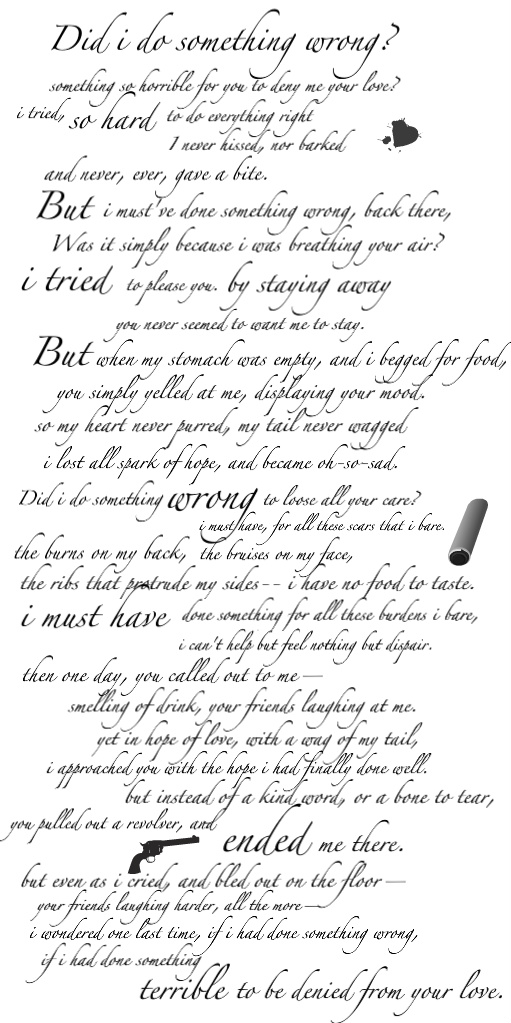 Did i do something wrong?
something so horrible for you to deny me your love?
i tried, so hard to do everything right
I never hissed, nor barked
and never, ever, gave a bite.
But i must've done something wrong, back there,
Was it simply because i was breathing your air?
i tried to please you. by staying away
you never seemed to want me to stay.
But when my stomach was empty, and i begged for food,
you simply yelled at me, displaying your mood.
so my heart never purred, my tail never wagged
i lost all spark of hope, and became oh-so-sad.
Did i do something wrong to loose all your care?
i must have, for all these scars that i bare.
the burns on my back, the bruises on my face,
the ribs that protrude my sides-- i have no food to taste.
i must have done something for all these burdens i bare,
i can't help but feel nothing but dispair.
then one day, you called out to me—
smelling of drink, your friends laughing at me.
yet in hope of love, with a wag of my tail,
i approached you with the hope i had finally done well.
but instead of a kind word, or a bone to tear,
you pulled out a revolver, and ended me there.
but even as i cried, and bled out on the floor—
your friends laughing harder, all the more—
i wondered one last time, if i had done something wrong,
if i had done something
terrible to be denied from your love.